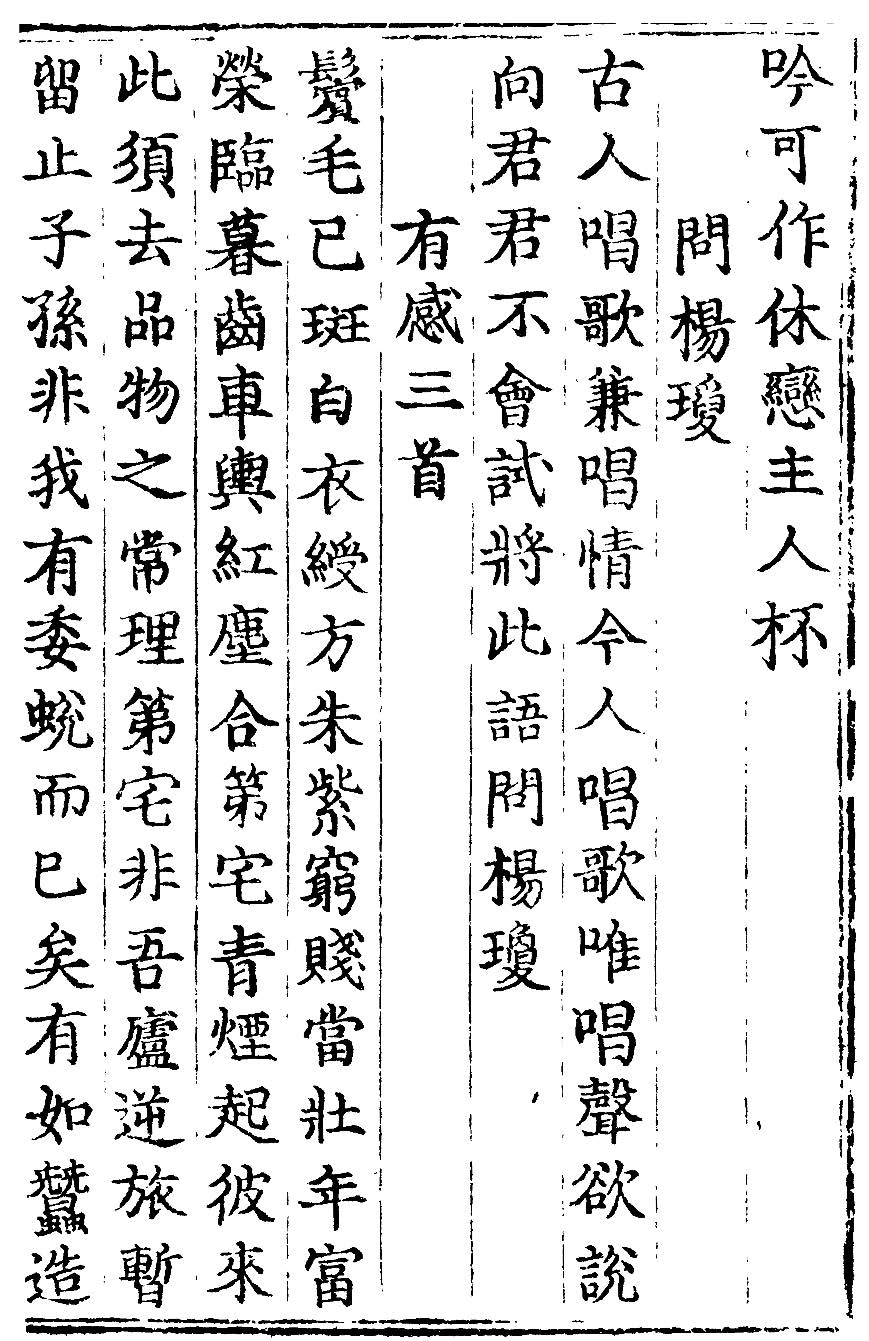 吟可作休戀主人杯
問楊瓊
古人唱歌兼唱情今人唱歌唯唱聲欲說
向君君不會試將此語問楊瓊
有感三首
鬢毛已斑白衣綬方朱紫窮賤當壯年富
榮臨暮齒車輿紅塵合第宅青煙起彼來
此須去品物之常理第宅非吾廬逆旅暫
留止子孫非我有委蛻而已矣有如蠶造